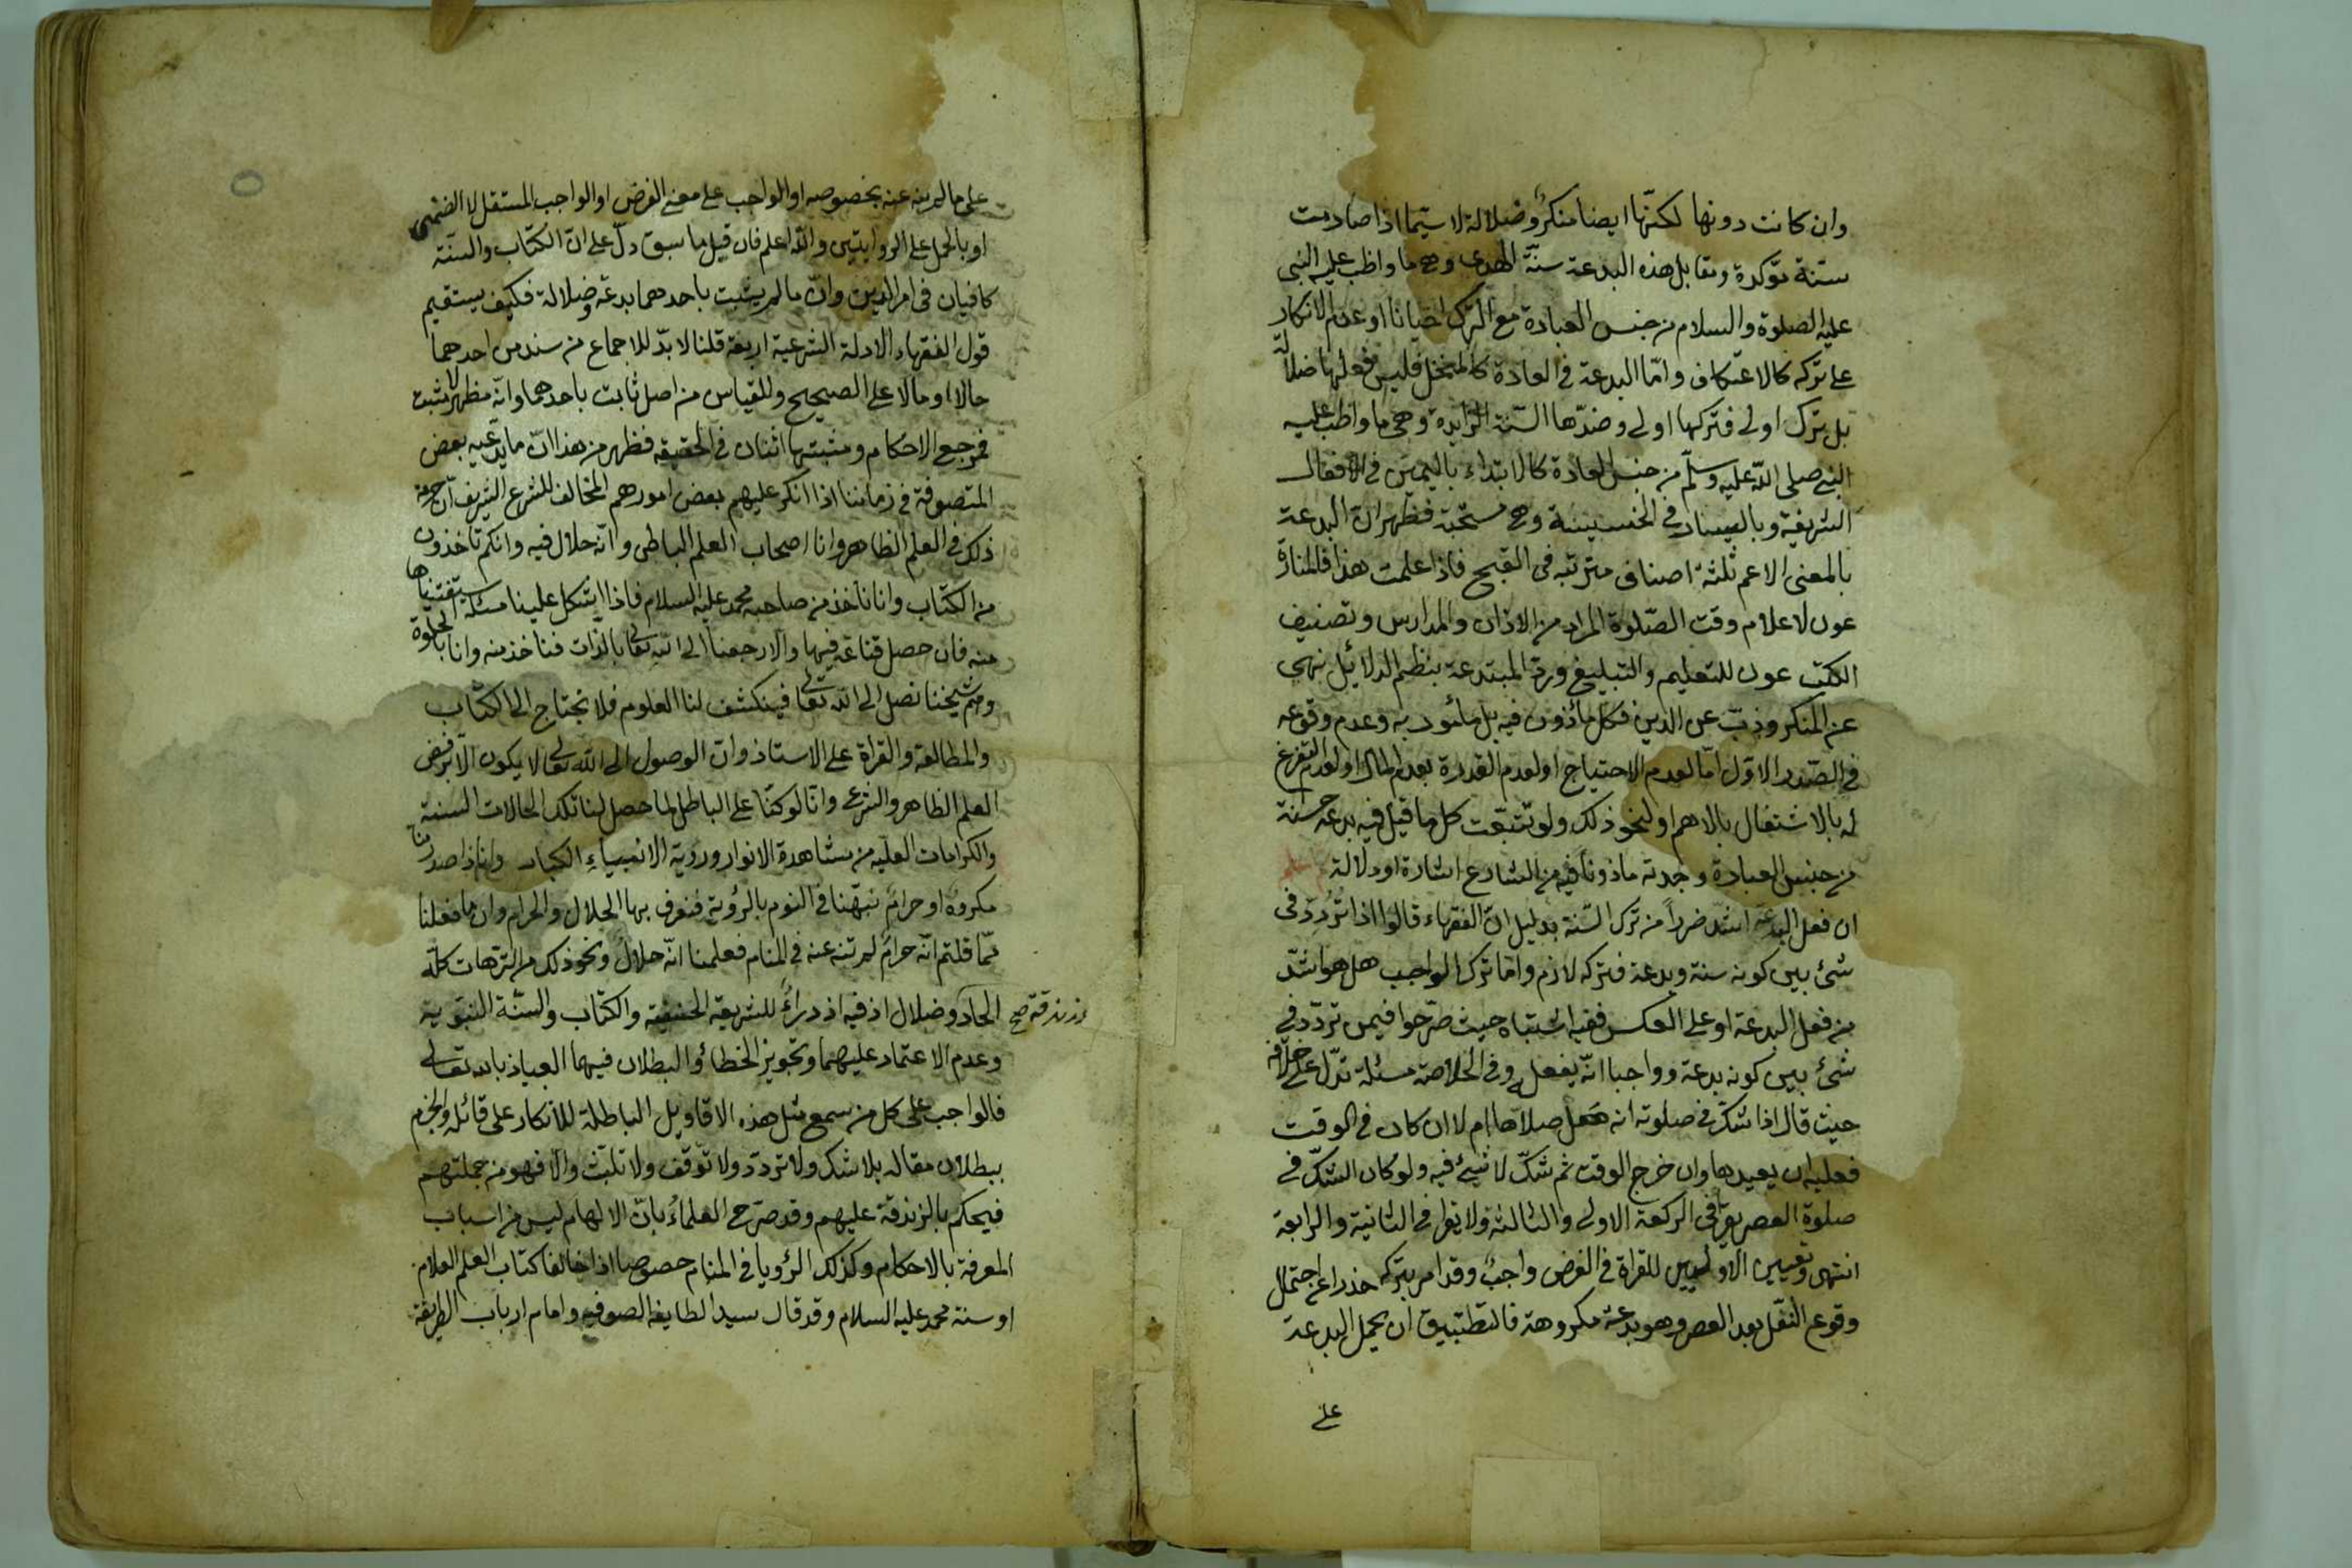 وان كانت دونها لكنّها ايضا منكر وضلالة لا سيّما اذا صادمت
سنّة مؤكدة ومقابل هذه البدعة سنّة الهدى وهى ما واظب عليه النبى
عليه الصلوة والسلام من جنس العبادة مع الترك احيانا او عدم الانكار
على تركه كالاعتكاف وامّا البدعة فى العادة كالمنخل فليس فعلها ضلالة
بل ترك اولى فتركها اولى وضدّها السّنة الزايدة وهى ما واظب عليه
النبى صلى الله عليه وسلّم من جنس العادة كالابتداء باليمين فى الافعال
الشريفة وباليسار فى الخسيسة وهى مستحبّة فظهر ان البدعة
بالمعنى الاعم ثلثة اصناف مترتبة فى القبح فاذا علمت هذا فالمنارة
عون لاعلام وقت الصّلوة المراد من الاذان والمدارس وتصنيف
الكتب عون للتعليم والتبليغ ورد المبتدعة بنظم الدلائل نهى
عن المنكر وذبّ عن الدين فكل مأذون فيه بل مأمور به وعدم وقوعه
فى الصّدر الاوّل امّا لعدم الاحتياج او لعدم القدرة بعدم المال او لعدم التفرغ
له بالاشتغال بالاهم او لنحو ذلك ولو تتبّعت كل ما قيل فيه بدعة حسنة
من جنس العبادة وجدته ماذونا فيه من الشارع اشارة او دلالة
ان فعل البدعة اشدّ ضرراً من ترك السّنة بدليل انّ الفقهاء قالوا اذا تُردّد فى
شئ بين كونه سنة وبدعة فتركه لازم وامّا ترك الواجب هل هو اشدّ
من فعل البدعة او على العكس ففيه اشتباه حيث صرّحوا فيمن تردّد فى
شئ بين كونه بدعة وواجبا انّه يفعله وفى الخلاصة مسئلة تدلّ على خلافه
حيث قال اذا شكّ فى صلوته انه هَل صلاّها ام لا ان كان فى الوقت
فعليه ان يعيدها وان خرج الوقت ثم شكّ لا شئ فيه ولو كان الشكّ فى
صلوة العصر يقرأ فى الركعة الاولى والثالثة ولا يقرا فى الثانية والرابعة
انتهى وتعيين الاوليين للقراة فى الفرض واجب وقد امر بتركه حذرا عن احتمال
وقوع النّفل بعد العصر وهو بدعة مكروهة فالتّطبيق ان يحمل البدعة
على
على ما لم ينه عنه بخصوصه او الواجب على معنى الفرض او الواجب المستقل لا الضّمنى
او بالحمل على الروايتين والله اعلم فان قيل ما سبق دلّ على انّ الكتاب والسنّة
كافيان فى امر الدين وانّ ما لم يثبت باحدهما بدعة وضلالة فكيف يستقيم
قول الفقهاء الادلة الشرعية اربعة قلنا لا بدّ للاجماع من سند من احدهما
حالا او مالا على الصحيح وللقياس من اصل ثابت باحدهما وانّه مظهر لا مثبت
فمرجع الاحكام ومثبتها اثنان فى الحقيقة فظهر من هذا انّ ما يدّعيه بعض
المتصوفة فى زماننا اذا انكر عليهم بعض امورهم المخالف للشرع الشريف انّ حرمة
ذلك فى العلم الظاهر وانا اصحاب العلم الباطن وانّه حلال فيه وانكم تأخذون
من الكتاب وانا نأخذ من صاحبه محمد عليه السلام فاذا اشكل علينا مسئلة استفتيناها
منه فان حصل قناعة فيها والا رجعنا الى الله تعالى بالذات فنأخذ منه وانا بالخلوة
وهمّ شيخنا نصل الى الله تعالى فينكشف لنا العلوم فلا نحتاج الى الكتاب
والمطالعة والقراة على الاستاذ وان الوصول الى الله تعالى لا يكون الا برفض
العلم الظاهر والشرع وانا لو كنّا على الباطل لما حصل لنا تلك الحالات السنية
والكرامات العليّة من مشاهدة الانوار ورؤية الانبياء الكبار وانا اذا صدر منا
مكروه او حرام نبّهنا فى النوم بالرؤية فنعرف بها الحلال والحرام وان ما فعلنا
ممّا قلتم انّه حرام لم ننه عنه فى المنام فعلمنا انّه حلال ونحو ذلك من الترّهات كلّه
الحاد وضلال اذ فيه ازدراءٌ للشريعة الحنفية والكتاب والسّنّة النبوّية
وزندقة صح
وعدم الاعتماد عليهما وتجويز الخطأ والبطلان فيهما العياذ بالله تعالى
فالواجب على كل من سمع مثل هذه الاقاويل الباطلة للانكار على قائله والجزم
ببطلان مقاله بلا شك ولا تردّد ولا توقّف ولا تلبّث والا فهو من جملتهم
فيحكم بالزندقة عليهم وقد صرّح العلماءُ بانّ الالهام ليس من اسباب
المعرفة بالاحكام وكذلك الرؤيا فى المنام خصوصا اذا خالفا كتاب العلم العلام
او سنة محمد عليه السلام وقد قال سيد الطايفة الصوفيه وامام ارباب الطريقة